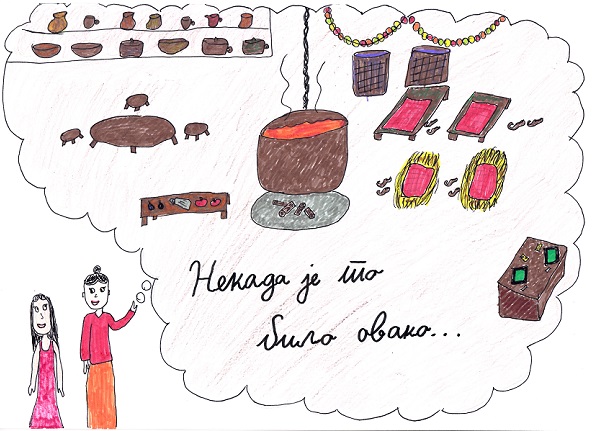 Некада је то
било овако...